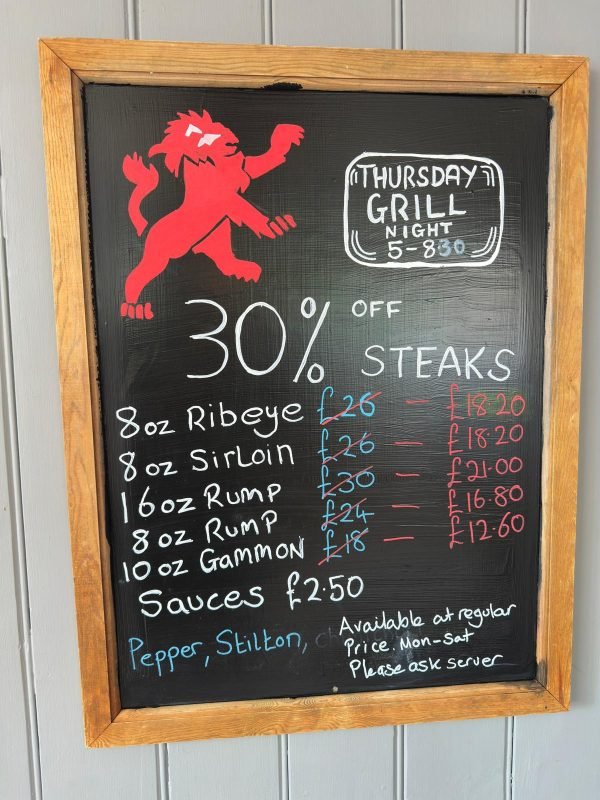 THURSDAY
GRILL
NIGHT
5-830
30% OFF
STEAKS
8oz Ribeye £26 - £18.20
8oz Sirloin £26 - £18.20
16oz Rump £30 - £21.00
8oz Rump £24 - £16.80
10oz Gammon £18 - £12.60
Sauces £2.50
Pepper, Stilton,
Available at regular
Price. Mon-sat
Please ask server